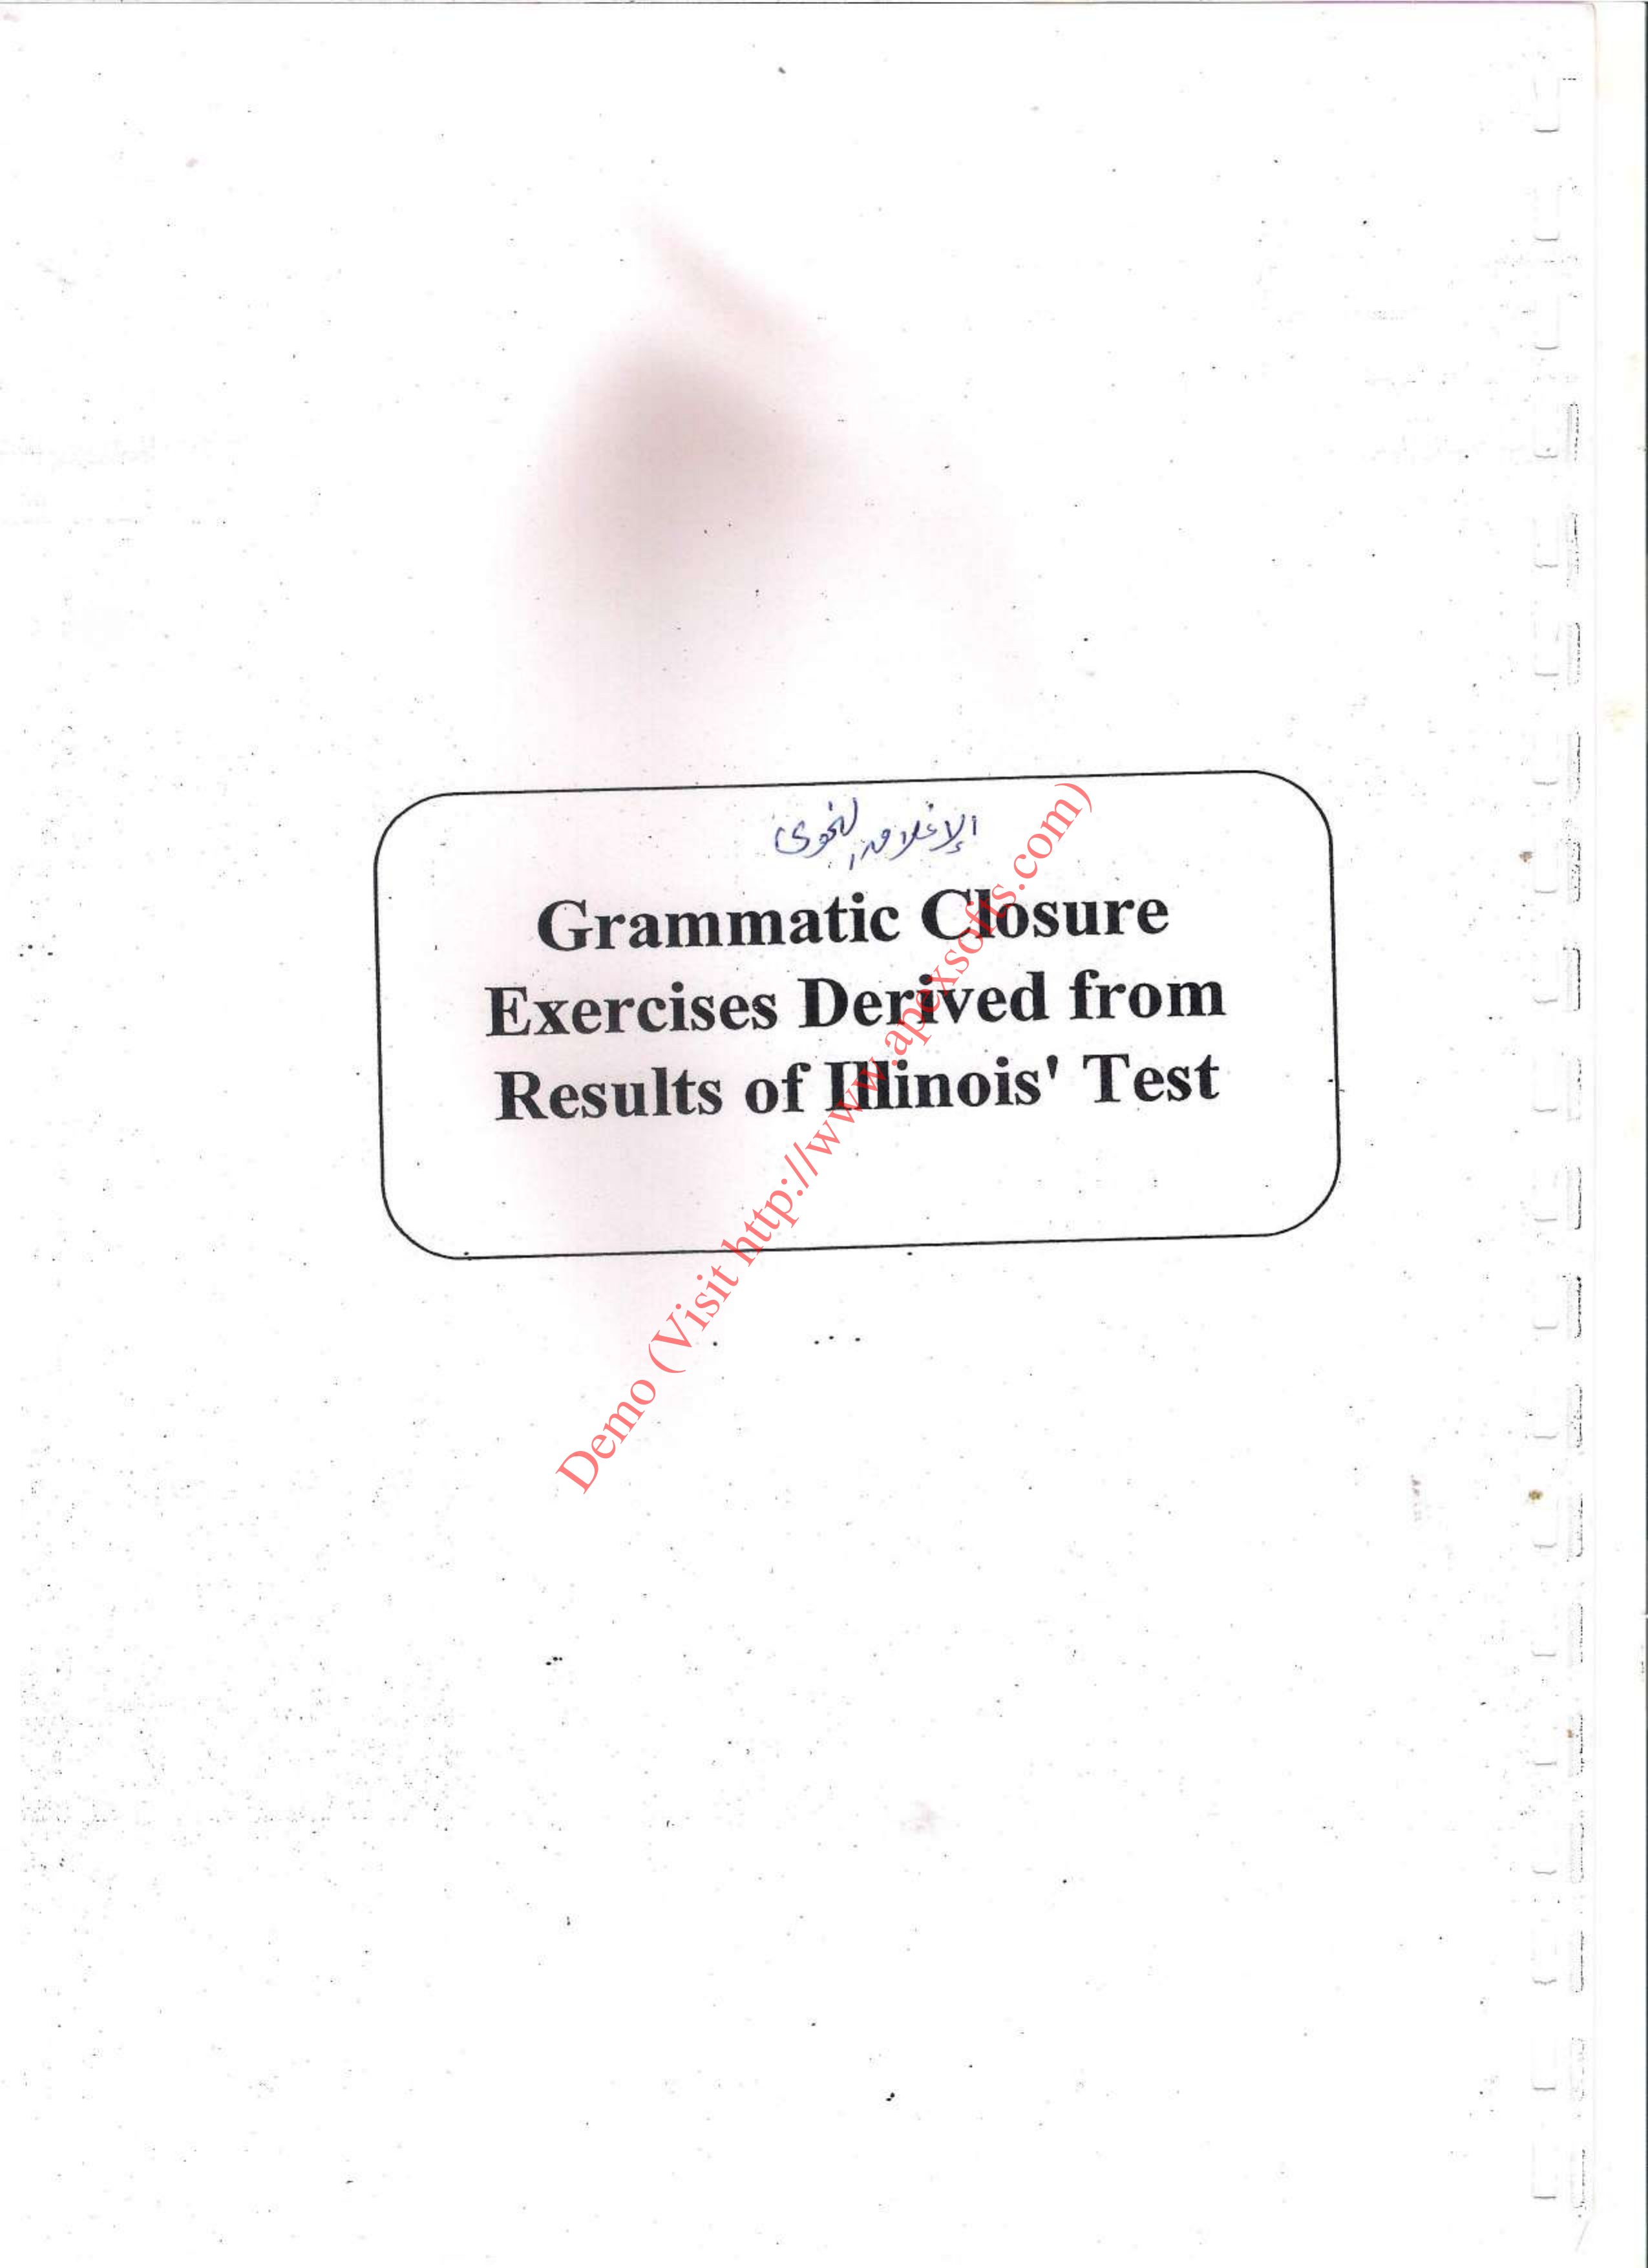 الإغلاق النحوى
Grammatic Closure
Exercises Derived from
Results of Illinois' Test
Demo (Visit http://www.apexsofts.com)